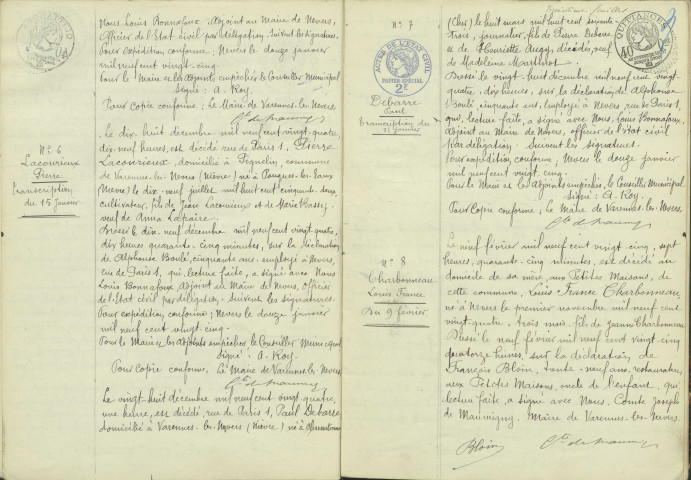 Nous Louis Bonnafoux, Adjoint au Maire de Nevers,
Officier de l'Etat civil par délégation, Suivent les signatures.
Pour expédition conforme, Nevers le douze janvier
mil neuf cent vingt-cinq.
Pour le Maire et les Adjoints empêchés, le Conseiller Municipal
Signé : A. Roy.
Pour Copie conforme, Le Maire de Varennes-les-Nevers
N° 6
Lacouvieux
Pierre
transcription
du 15 janvier
Le dix-huit décembre mil neuf cent vingt-quatre,
dix-neuf heures, est décédé rue de Paris 1, Pierre
Lacouvieux, domicilié à Pignelin, commune
de Varennes-les-Nevers (Nièvre) né à Pougues-les-Eaux
(Nièvre) le dix-neuf juillet mil huit cent cinquante
cultivateur, fils de Jean Lacouvieux et de Marie
veuf de Anna Lapaire.
Dressé le dix-neuf décembre mil neuf cent vingt-quatre,
dix heures quarante-cinq minutes, sur la déclaration
de Alphonse Boulé, cinquante ans, employé à Nevers,
rue de Paris 1, qui, lecture faite, a signé avec Nous
Louis Bonnafoux, Adjoint au Maire de Nevers, officier
de l'Etat civil par délégation. Suivent les signatures.
Pour expédition conforme, Nevers le douze janvier
mil neuf cent vingt-cinq.
Pour le Maire et les Adjoints empêchés, le Conseiller Municipal
Signé : A. Roy.
Pour Copie conforme, Le Maire de Varennes-les-Nevers
Le vingt-huit décembre mil neuf cent vingt-quatre,
une heure, est décédé, rue de Paris 1, Paul Debarre
domicilié à Varennes-les-Nevers (Nièvre) né à
N° 7
ACTES DE L'ETAT CIVIL
PAPIER SPECIAL
2F
Debarre
Paul
transcription du
QUITTANCES
40
(Cher) le huit mars mil huit cent soixante-
trois, journalier, fils de Pierre Debarre
et de Henriette Augy, décédés, veuf
de Madeleine
Dressé le vingt-huit décembre mil neuf cent vingt-
quatre, dix heures, sur la déclaration de Alphonse
Boulé, cinquante ans, employé à Nevers, rue de Paris 1,
qui, lecture faite, a signé avec Nous, Louis Bonnafoux,
Adjoint au Maire de Nevers, officier de l'Etat civil
par délégation. Suivent les signatures.
Pour expédition conforme, Nevers le douze janvier
mil neuf cent vingt-cinq.
Pour le Maire et les Adjoints empêchés, le Conseiller Municipal
Signé : A. Roy.
Pour Copie conforme, Le Maire de Varennes-les-Nevers.
N° 8
Charbonneau
Louis France
Du 9 février
Le neuf février mil neuf cent vingt-cinq, sept
heures, quarante-cinq minutes, est décédé au
domicile de sa mère, aux Petites Maisons, de
cette commune, Louis France Charbonneau,
né à Nevers le premier novembre mil neuf cent
vingt-quatre, trois mois, fils de Jeanne Charbonneau
Dressé le neuf février mil neuf cent vingt-cinq
quatorze heures, sur la déclaration, de
François Bloin, trente-neuf ans, restaurateur
aux Petites Maisons, oncle de l'enfant, qui,
lecture faite, a signé avec Nous, Comte Joseph
de Maumigny, Maire de Varennes-les-Nevers.
Bloin
Cte de Maumigny